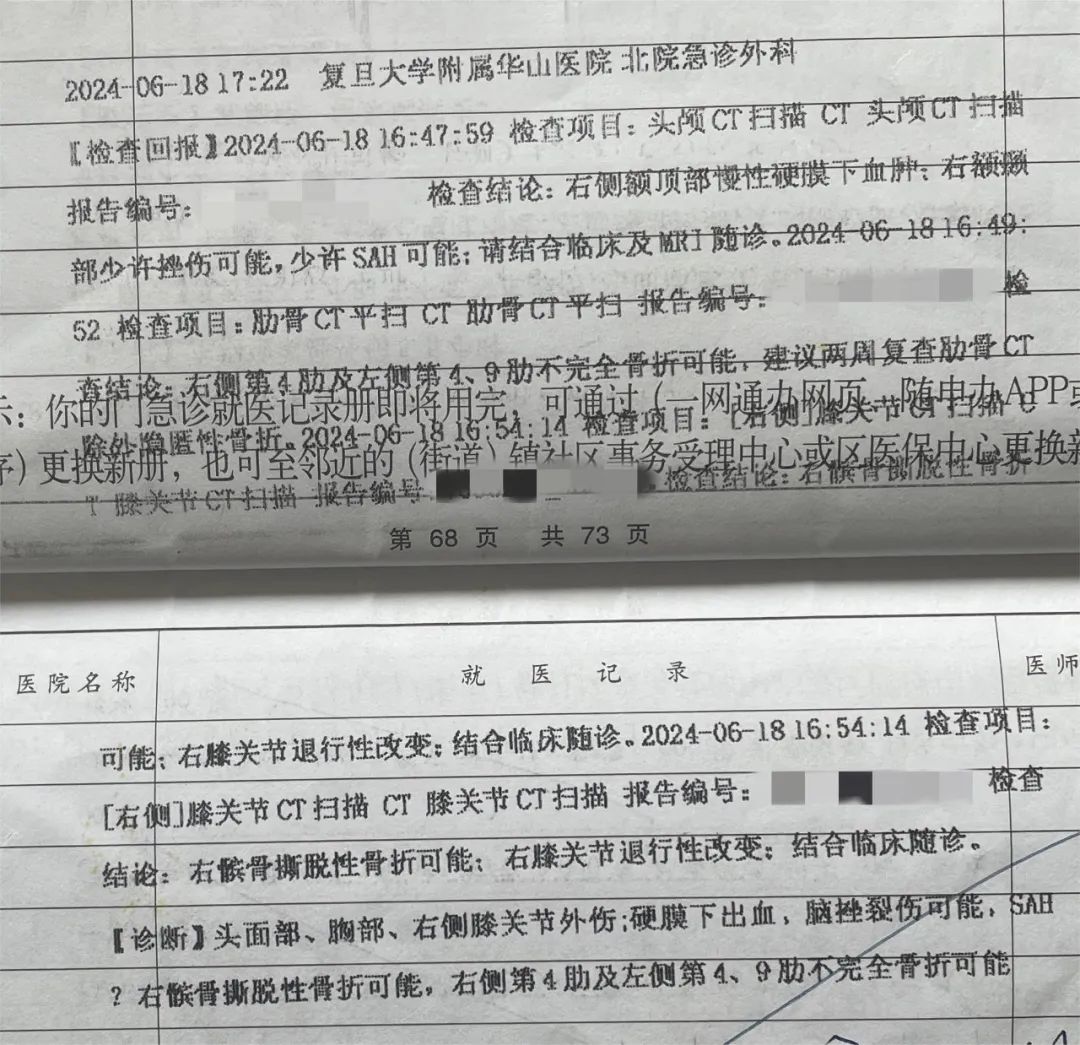 2024-06-18 17:22 复旦大学附属华山医院 北院急诊外科
【检查回报】2024-06-18 16:47:59 检查项目：头颅CT扫描 CT 头颅CT扫描
报告编号： 检查结论：右侧额顶部慢性硬膜下血肿；右额颞
部少许挫伤可能，少许SAH可能；请结合临床及MRI随诊。2024-06-18 16:49:
52 检查项目：肋骨CT平扫 CT 肋骨CT平扫 报告编号： 检
查结论：右侧第4肋及左侧第4、9肋不完全骨折可能，建议两周复查肋骨CT
示：你的门急诊就医记录册即将用完，可通过（一网通办网页、随申办APP或
除外隐匿性骨折。2024-06-18 16:54:14 检查项目：[右侧]膝关节CT扫描 C
序）更换新册，也可至邻近的（街道）镇社区事务受理中心或区医保中心更换新
T 膝关节CT扫描 报告编号 检查结论：右髌骨撕脱性骨折
第 68 页 共 73 页
医院名称 就医记录 医师
可能；右膝关节退行性改变；结合临床随诊。2024-06-18 16:54:14 检查项目：
[右侧]膝关节CT扫描 CT 膝关节CT扫描 报告编号： 检查
结论：右髌骨撕脱性骨折可能；右膝关节退行性改变；结合临床随诊。
【诊断】头面部、胸部、右侧膝关节外伤;硬膜下出血，脑挫裂伤可能，SAH
？右髌骨撕脱性骨折可能，右侧第4肋及左侧第4、9肋不完全骨折可能